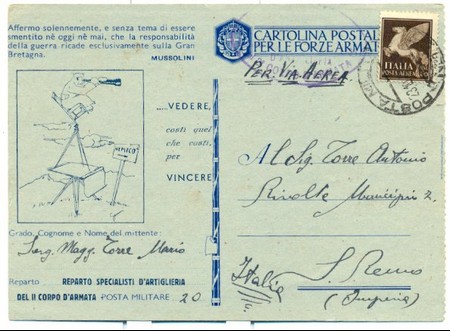 Affermo solennemente, e senza tema di essere
smentito nè oggi nè mai, che la responsabilità
della guerra ricade esclusivamente sulla Gran
Bretagna.
MUSSOLINI
CARTOLINA POSTALE
PER LE FORZE ARMATE
Per Via Aerea
ITALIA
POSTA AEREA
POSTA MIL
....VEDERE,
costi quel
che costi,
per
VINCERE
Al Sig. Torre Antonio
Rivolte Municipio 2
Italia
S. Remo
(Imperia)
Grado, Cognome e Nome del mittente:
Serg. Magg. Torre Mario
Reparto REPARTO SPECIALISTI D'ARTIGLIERIA
DEL II CORPO D'ARMATA POSTA MILITARE 20